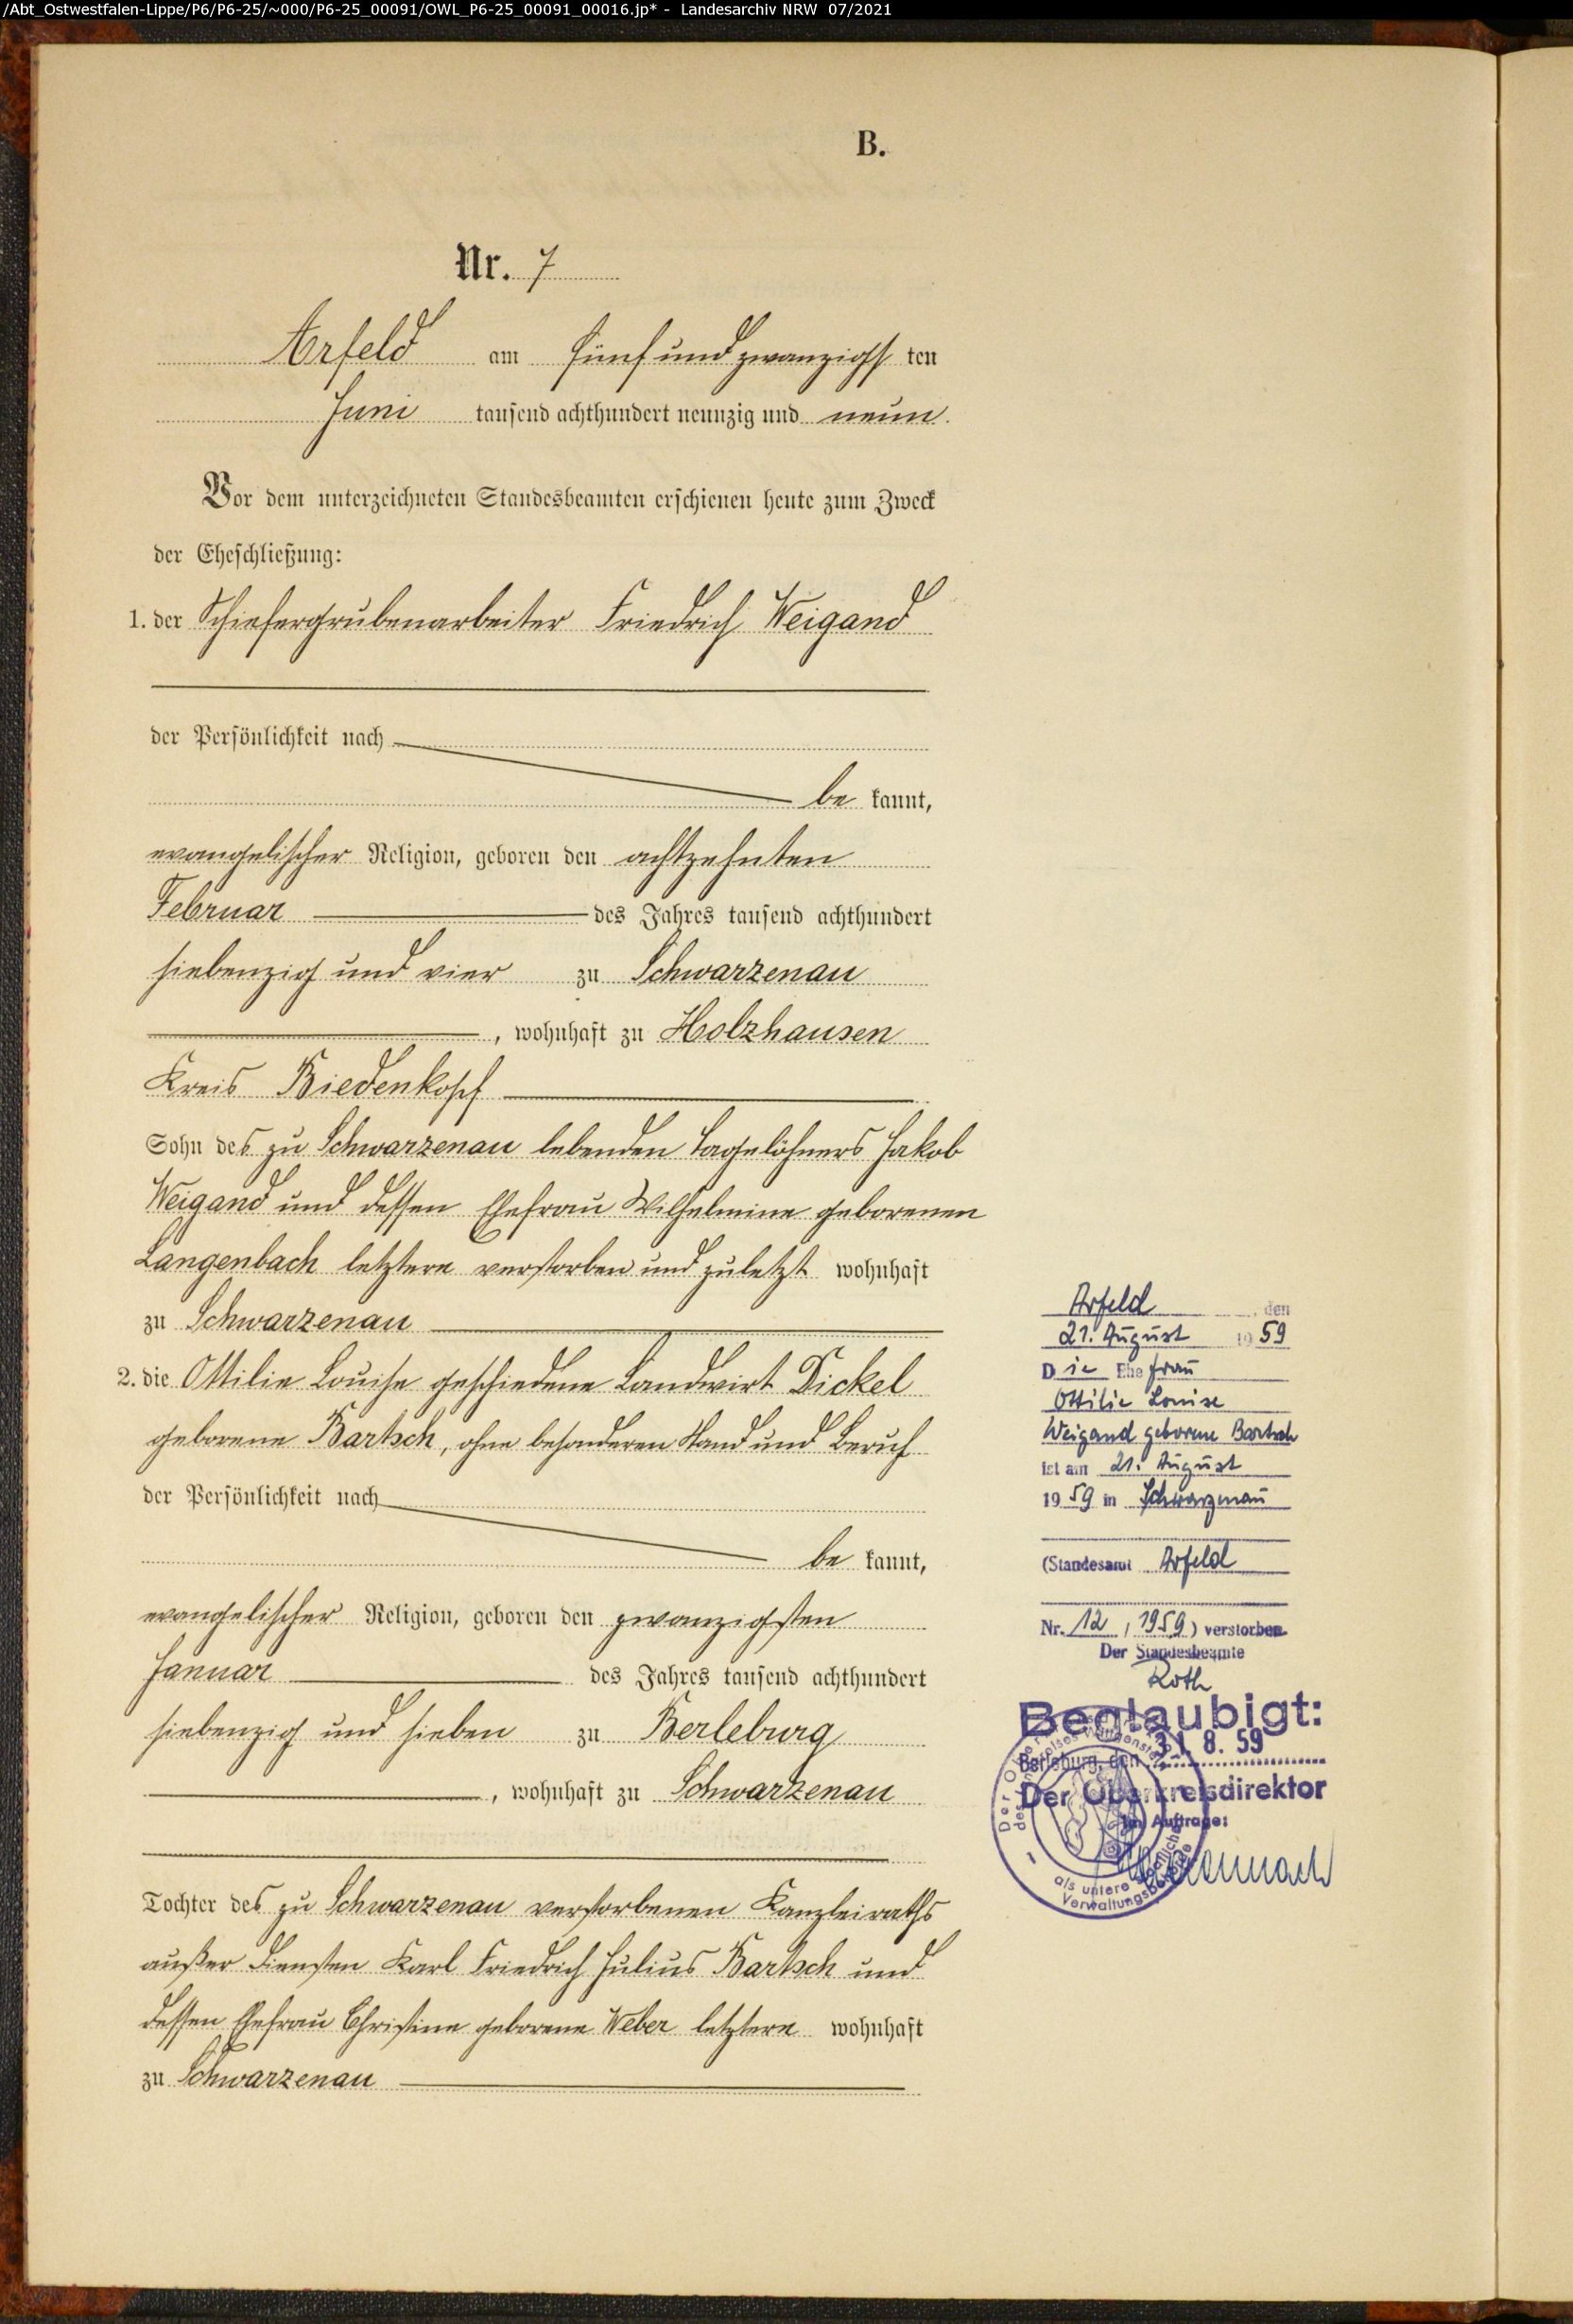 /Abt_Ostwestfalen-Lippe/P6/P6-25/~000/P6-25_00091/OWL_P6-25_00091_00016.jp* - Landesarchiv NRW 07/2021
B.
Nr. 7
Arfeld am fünf und zwanzigsten
Juni tausend achthundert neunzig und neun.
Vor dem unterzeichneten Standesbeamten erschienen heute zum Zweck
der Eheschließung:
1. der Schiefergrubenarbeiter Friedrich Weigand
der Persönlichkeit nach
be kannt,
evangelischer Religion, geboren den achtzehnten
Februar des Jahres tausend achthundert
siebenzig und vier zu Schwarzenau
, wohnhaft zu Holzhausen
Kreis Biedenkopf
Sohn des zu Schwarzenau lebenden Tagelöhners Jakob
Weigand und dessen Ehefrau Wilhelmine geborenen
Langenbach letztere verstorben und zuletzt wohnhaft
zu Schwarzenau
2. die Ottilie Louise geschiedene Landwirt Dickel
geborene Bartsch, ohne besonderen Stand und Beruf
der Persönlichkeit nach
be kannt,
evangelischer Religion, geboren den zwanzigsten
Januar des Jahres tausend achthundert
siebenzig und sieben zu Berleburg
, wohnhaft zu Schwarzenau
Tochter des zu Schwarzenau verstorbenen Kanzleiraths
außer Diensten Karl Friedrich Julius Bartsch und
dessen Ehefrau Christine geborene Weber letztere wohnhaft
zu Schwarzenau
Arfeld, den
21. August 1959
Die Ehefrau
Ottilie Louise
Weigand geborene Bartsch
ist am 21. August
1959 in Schwarzenau
(Standesamt Arfeld
Nr. 12 / 1959) verstorben
Der Standesbeamte
Roth
Beglaubigt:
Berleburg, den 31. 8. 59
Der Oberkreisdirektor
Im Auftrage:
Der Ober
des Kreises Wittgenstein
als untere staatliche
Verwaltungsbehörde